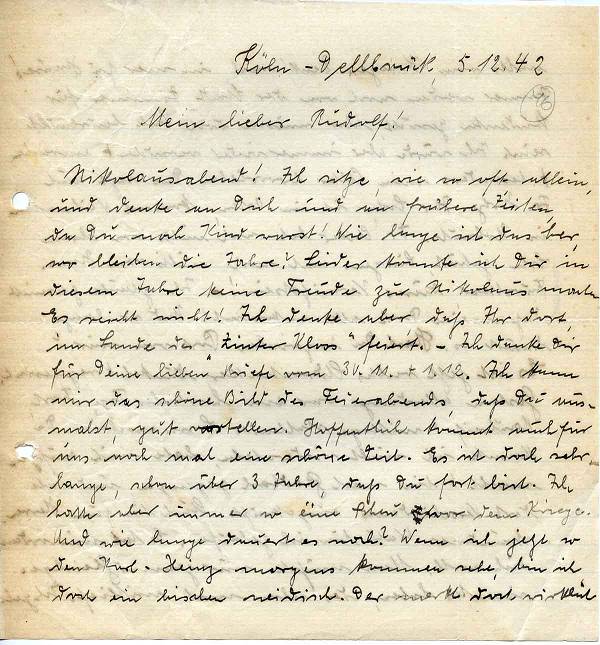 Köln-Dellbrück, 5.12.42
50
Mein lieber Rudolf!
Nikolausabend! Ich sitze, wie so oft allein,
und denke an Dich und an frühere Zeiten,
da Du noch Kind warst! Wie lange ist das her,
wo bleiben die Jahre? Leider konnte ich Dir in
diesem Jahre keine Freude zu Nikolaus machen
Es reicht nicht! Ich denke aber daß Ihr dort,
im Lande der "Sinter Kloos" feiert. - Ich danke Dir
für Deine lieben Briefe vom 30.11. + 1.12. Ich kann
mir das schöne Bild des Feierabends, daß Du aus-
malst, gut vorstellen. Hoffentlich kommt auch für
uns noch mal eine schöne Zeit. Es ist doch sehr
lange, schon über 3 Jahre, daß Du fort bist. Ich
hatte aber immer so eine Scheu vor dem Kriege.
Und wie lange dauert es noch? Wenn ich jetzt so
den Karl-Heinz morgens kommen sehe, bin ich
doch ein bischen neidisch. Der merkt doch wirklich